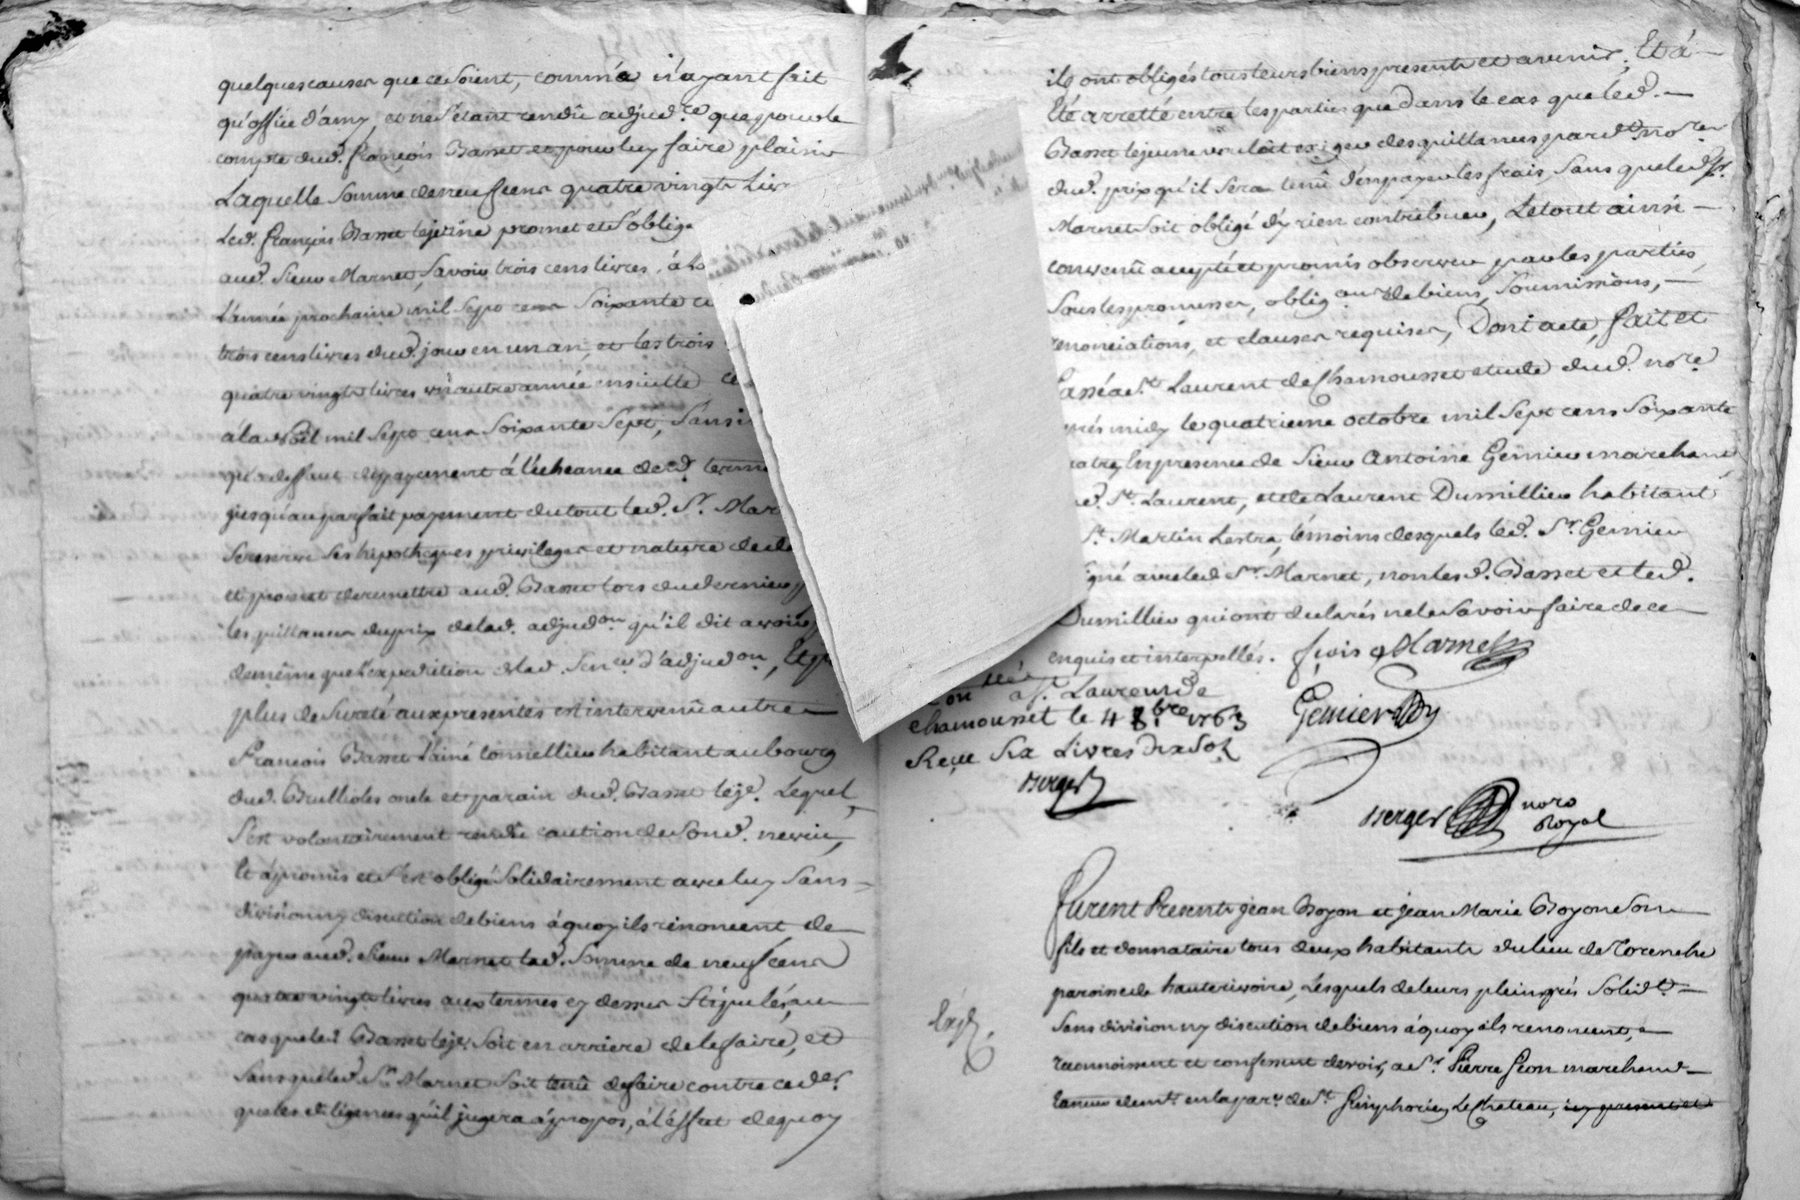 quelques causes que ce soient, comme n'ayant fait
qu'office d'amy, et ne s'étant rendû adjud.re que pour le
compte dud. françois Basset et pour luy faire plaisir
Laquelle somme de neuf cens quatre vingts Liv
Led. françois Basset lejeune promet et s'oblige
aud. Sieur Marnet, Savoir trois cens livres, à
L'année prochaine mil sept cens soixante
trois cens livres dud. jour en un an, et les trois
quatre vingts livres un autre année ensuitte
ala Noël mil sept cens soixante sept, sans
qu'a deffaut de payement á l'écheance desd. terme
jusqu'au parfait payement du tout led. Sr. Mar
se reserve ses hipotheques privileges et nature de
et promet de remettre aud. Basset lors du dernier
les quittances du prix de lad. adjudon. qu'il dit avoir
de même que l'expedition de lad. Sence d'adjudon, Et
plus de sureté aux presentes est intervenû autre
François Basset l'ainé tonnellier habitant au bourg
dud. Brullioles oncle et parain dud. Basset leje. Lequel,
s'est volontairement rendu caution de sond. neveu,
Et á promis et s'est obligé solidairement avec luy sans
division ny discution de biens á quoy ils renoncent de
payer aud. Sieur Marnet lad. somme de neuf cens
quatre vingts livres aux termes cy dessus stipulés, au
cas que led. Basset leje. soit en arriere de le faire, et
sans que led. Sr. Marnet soit tenû de faire contre ced.er
quales diligences qu'il jugera á propos, à l'effet de quoy
ils ont obligés tous leurs biens presents et avenir. Et á
Eté arretté entre les parties que dans le cas que led.
Basset lejeune voulût exiger des quittances pard.t no.re
dud. prix qu'il sera tenû d'en payer les frais, sans que led. Sr.
Marnet soit obligé d'y rien contribuer, Le tout ainsi
convenû accepté et promis observer par les parties,
sous les promesses, oblig.ons de biens, soumissions,
renonciations, et clauses requises, Dont acte, fait et
passé a St. Laurent de Chamousset etude dud. no.re
après midy le quatrieme octobre mil sept cens soixante
quatre En presence de Sieur Antoine Genier marchand
ud. St. Laurent, et de Laurent Dumillier habitant
St. Martin Lestra, témoins desquels led. Sr. Genier
signé avec led. Sr. Marnet, non lesd. Basset et led.
Dumillier qui ont declarés ne le savoir faire de ce
enquis et interpellés. fçois Marnet
Conllé a St. Laurent de
Chamousset le 4 8bre 1763
Reçu Six Livres dix sol
Berger
Genier
Berger noro
Royal
Furent Presents jean Boyon et jean Marie Boyon son
fils et donnataire tous deux habitants du lieu de Torenche
paroisse de hauterivoire, Lesquels de leurs pleins grés solid.t
sans division ny discution de biens á quoy ils renoncent,
reconnoissent et confessent devoir, a Sr. Pierre Geon marchand
tanneur demt. en la par.e de St. Simphorien Le Chateau, icy present et
Exp.